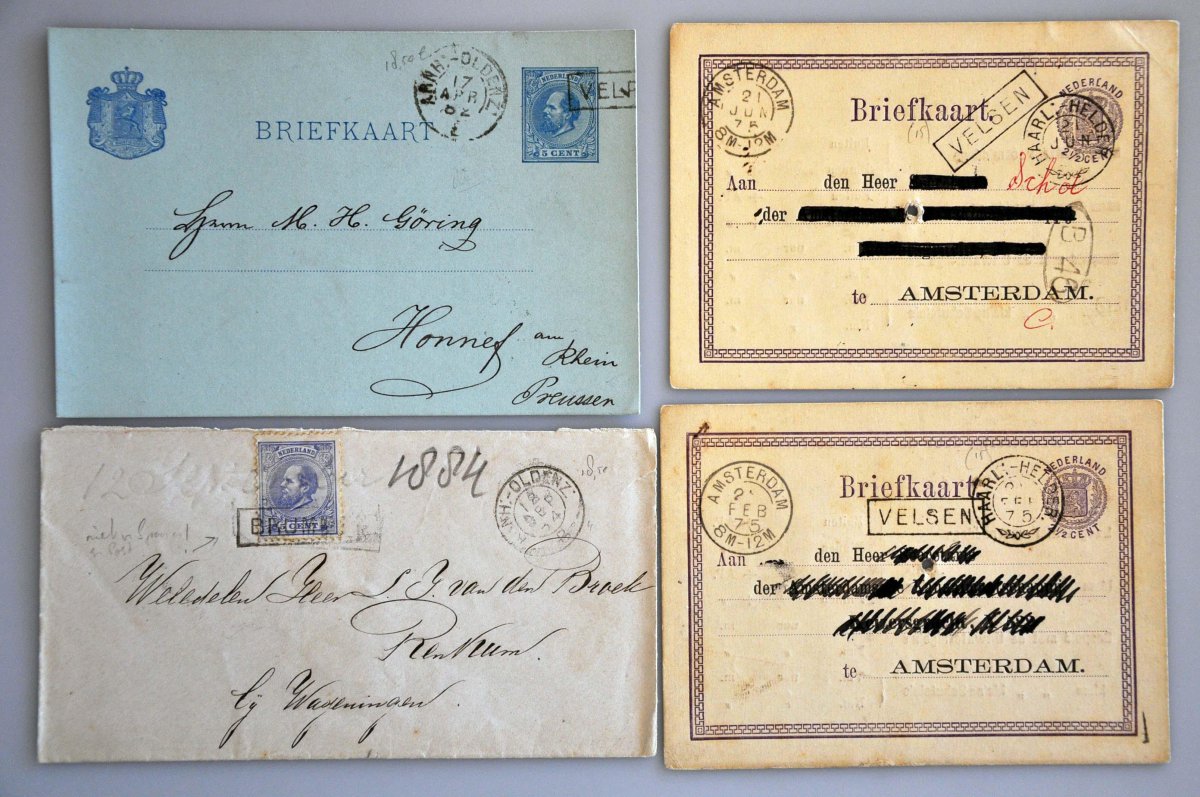 18.50
ARNH:-OLDENZ:
17
APR
82
NEDERLAND
5 CENT
VELP
BRIEFKAART
Herrn M. H. Göring
Honnef am
Rhein
Preussen
AMSTERDAM
21
JUN
75
8M-12M
Briefkaart.
(15)
VELSEN
NEDERLAND
HAARL:-HELDER
JUN
2½ CENT
Aan den Heer Schol
der
B 46
te AMSTERDAM.
C.
NEDERLAND
5 CENT
1884
18.50
NH:-OLDENZ:
Weledelen Heer S. J. van den Broek
Renkum.
by Wageningen.
AMSTERDAM
FEB
75
8M-12M
Briefkaart
(15)
VELSEN
NEDERLAND
HAARL:-HELDER
75
½ CENT
Aan den Heer
der
te AMSTERDAM.